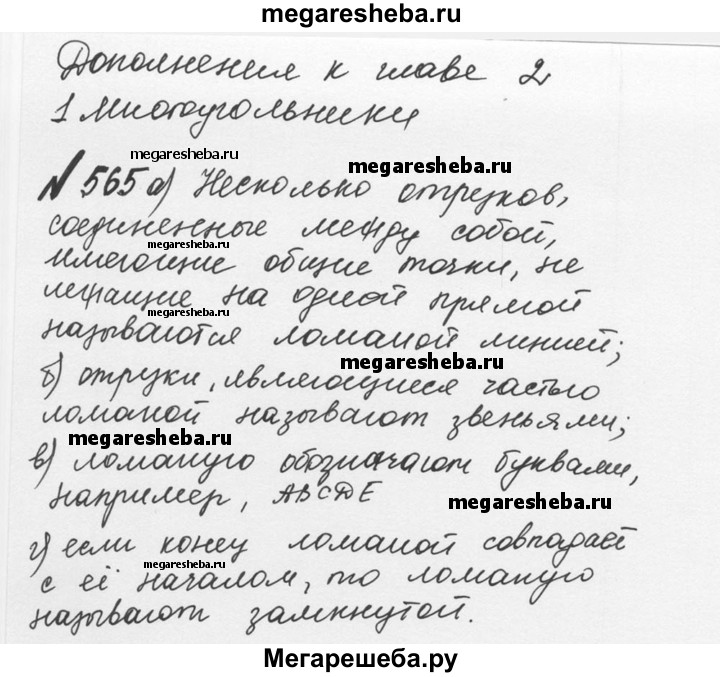 megaresheba.ru
Дополнения к главе 2
1 Многоугольники
megaresheba.ru
№ 565 а) Несколько отрезков,
megaresheba.ru
соединенные между собой,
megaresheba.ru
имеющие общие точки, не
лежащие на одной прямой
megaresheba.ru
называются ломаной линией;
megaresheba.ru
б) отрезки, являющиеся частью
ломаной называют звеньями;
megaresheba.ru
в) ломаную обозначают буквами,
например, ABCDE
megaresheba.ru
г) если конец ломаной совпадает
megaresheba.ru
с её началом, то ломаную
называют замкнутой.
Мегарешеба.ру